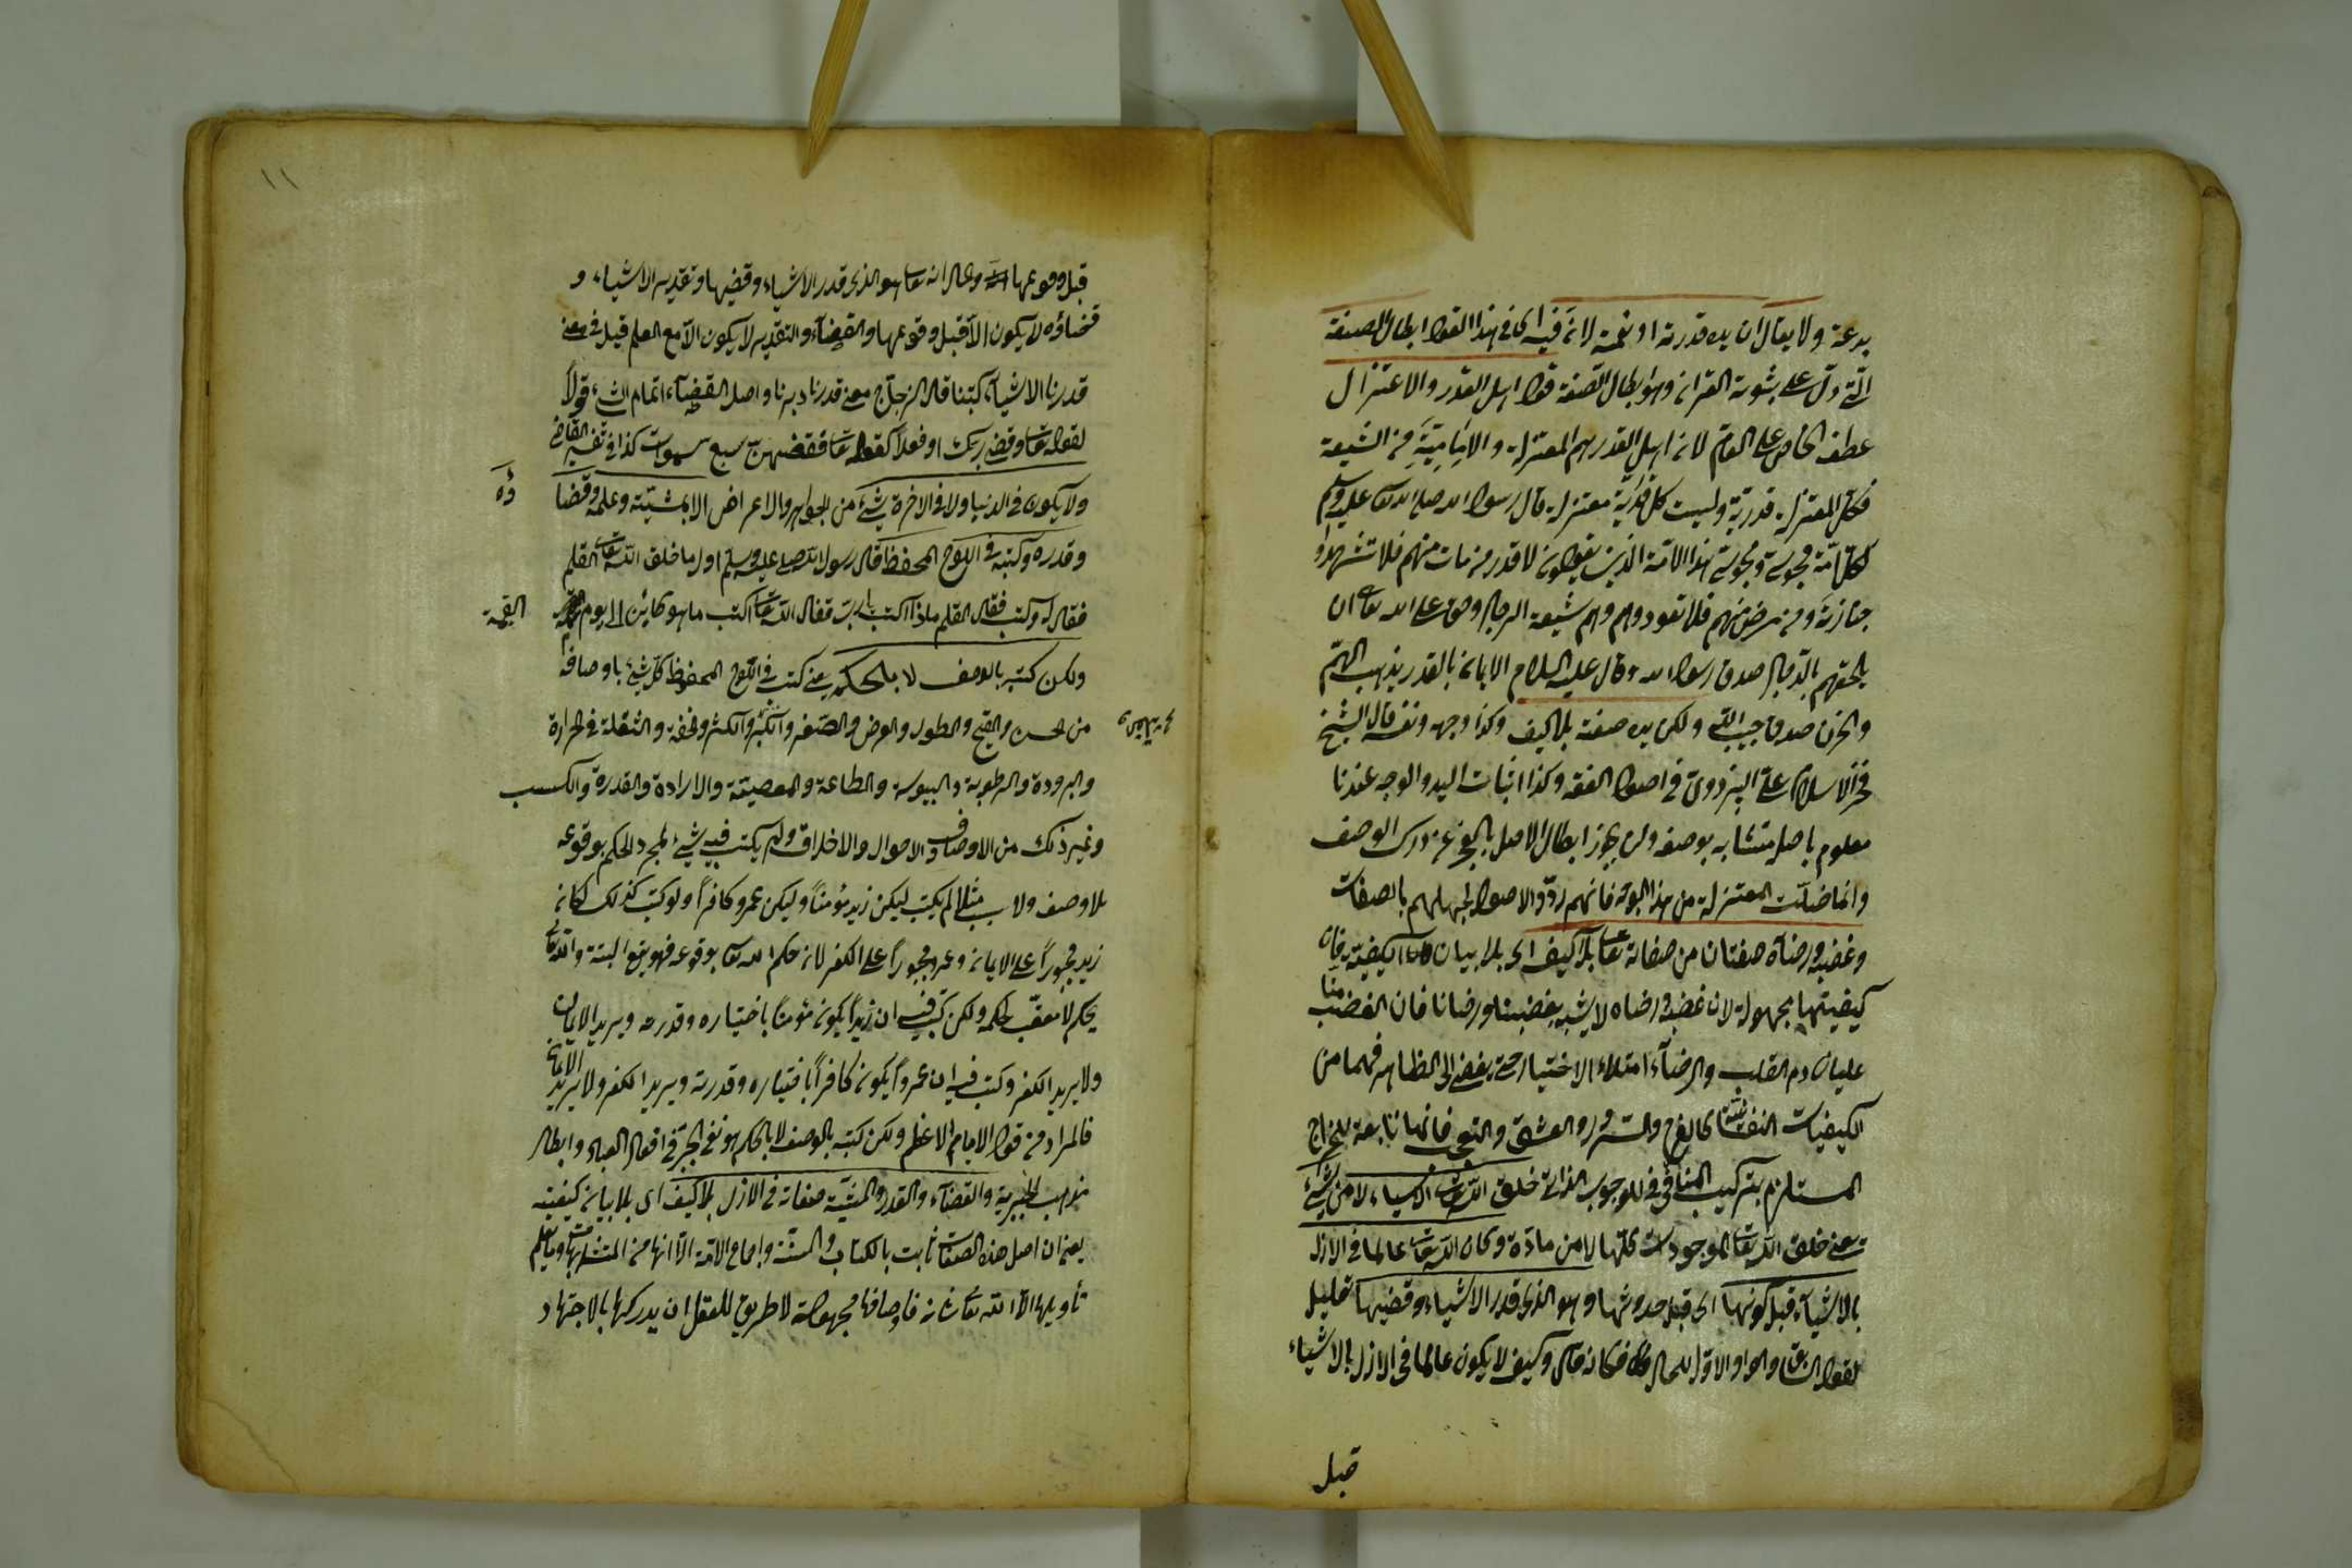 بدعة ولا يقال ان يده قدرته او نعمته لانه فيه اى فى هذا القول ابطال الصفة
التى دل على ثبوته القران وهو ابطال الصفة قول اهل القدر والاعتزال
عطف الخاص على العام لان اهل القدر هم المعتزلة والامامية من الشيعة
فكل المعتزلة قدرية وليست كل قدرية معتزلة قال رسول الله صلى الله تعا عليه وسلم
لكل امة مجوس ومجوس هذه الامة الذين يقولون لا قدر من مات منهم فلا تشهدوا
جنازته ومن مرض منهم فلا تعودوهم وهم شيعة الدجال وحق على الله تعا ان
يلحقهم بالدجال صدق رسول الله وقال عليه السلام الايمان بالقدر يذهب الهم
والحزن صدق حبيب الله ولكن يده صفته بلا كيف وكذا وجهه ونفسه قال الشيخ
فخر الاسلام على البزدوى فى اصول الفقه وكذا اثبات اليد والوجه عندنا
معلوم باصله متشابه بوصفه ولن يجوز ابطال الاصل بالعجز عن درك الوصف
وانما ضلت المعتزلة من هذا الوجه فانهم ردوا الاصول لجهلهم بالصفات
وغضبه ورضاه صفتان من صفاته تعا بلا كيف اى بلا بيان الكيفية فان
كيفيتهما مجهولة لان غضبه ورضاه لا يشبه بغضبنا ورضانا فان الغضب منا
غليان دم القلب والرضاء امتلاء الاختيار حتى يفضى الى الظاهر فهما من
الكيفيات النفسانية كالفرح والسرور والعشق والتعجب فانها تابعة للمزاج
المستلزم بتركيب المنافى للوجوب الذاتى خلق الله تعا الاشياء لا من شئ
يعنى خلق الله تعا الموجودات كلها لا من مادة وكان الله تعا عالما فى الازل
بالاشياء قبل كونها اى قبل حدوثها وهو الذى قدر الاشياء وقضيها تعليل
لقوله السابق والواو الاول للحال فكانه قال وكيف لا يكون عالما فى الازل بالاشياء
قبل
١١
قبل وقوعها والحال انه تعا هو الذى قدر الاشياء وقضيها وتقدير الاشياء و
قضاؤه لا يكون الا قبل وقوعها والقضاء والتقدير لا يكون الا مع العلم قيل فى معنى
قدرنا الاشياء كتبنا قال الزجاج معنى قدرنا دبرنا واصل القضاء اتمام الشئ قولا
لقوله تعا وقضى ربك او فعلا كقوله تعا فقضيهن سبع سموات كذا فى تفسير القاضى
ولا يكون فى الدنيا ولا فى الاخرة شئ من الجواهر والاعراض الا بمشيته وعلمه وقضا ؤه
وقدره وكتبه فى اللوح المحفوظ قال رسول الله صلى عليه وسلم اول ما خلق الله تعا القلم
فقال له اكتب فقال القلم ماذا اكتب يا رب فقال الله تعا اكتب ما هو كائن الى يوم القيمة
ولكن كتبه بالوصف لا بالحكم يعنى كتب فى اللوح المحفوظ كل شئ باوصافه
من الحسن والقبح والطول والعرض والصغر والكبر والكثر والخفة والثقلة فى الحرارة
والبرودة والرطوبة واليبوسة والطاعة والمعصية والارادة والقدرة والكسب
وغير ذلك من الاوصاف والاحوال والاخلاق ولم يكتب فيه شئ لمجرد الحكم بوقوعه
بلا وصف ولا سبب مثلا لم يكتب ليكن زيد مؤمنا وليكن عمرو كافرا ولو كتب كذلك لكان
زيد مجبورا على الايمان وعمرو مجبورا على الكفر لان حكم الله تعا بوقوعه فهو يقع البتة والله تعا
يحكم لا معقب لحكمه ولكن كتب فيه ان زيدا يكون مؤمنا باختياره وقدرته ويريد الايمان
ولا يريد الكفر وكتب فيه ان عمروا يكون كافرا باختياره وقدرته ويريد الكفر ولا يريد الايمان
فالمراد من قول الامام الاعظم ولكن كتبه بالوصف لا بالحكم هو نفى الجبر فى افعال العباد وابطال
مذهب الجبرية والقضاء والقدر والمشية صفاته فى الازل بلا كيف اى بلا بيان كيفيته
يعنى ان اصل هذه الصفات ثابت بالكتاب والسنة واجماع الامة الا انها من المتشابهات وما يعلم
تأويلها الا الله تعا شانه فاوصافها مجهولة لا طريق للعقل ان يدركها بالاجتهاد